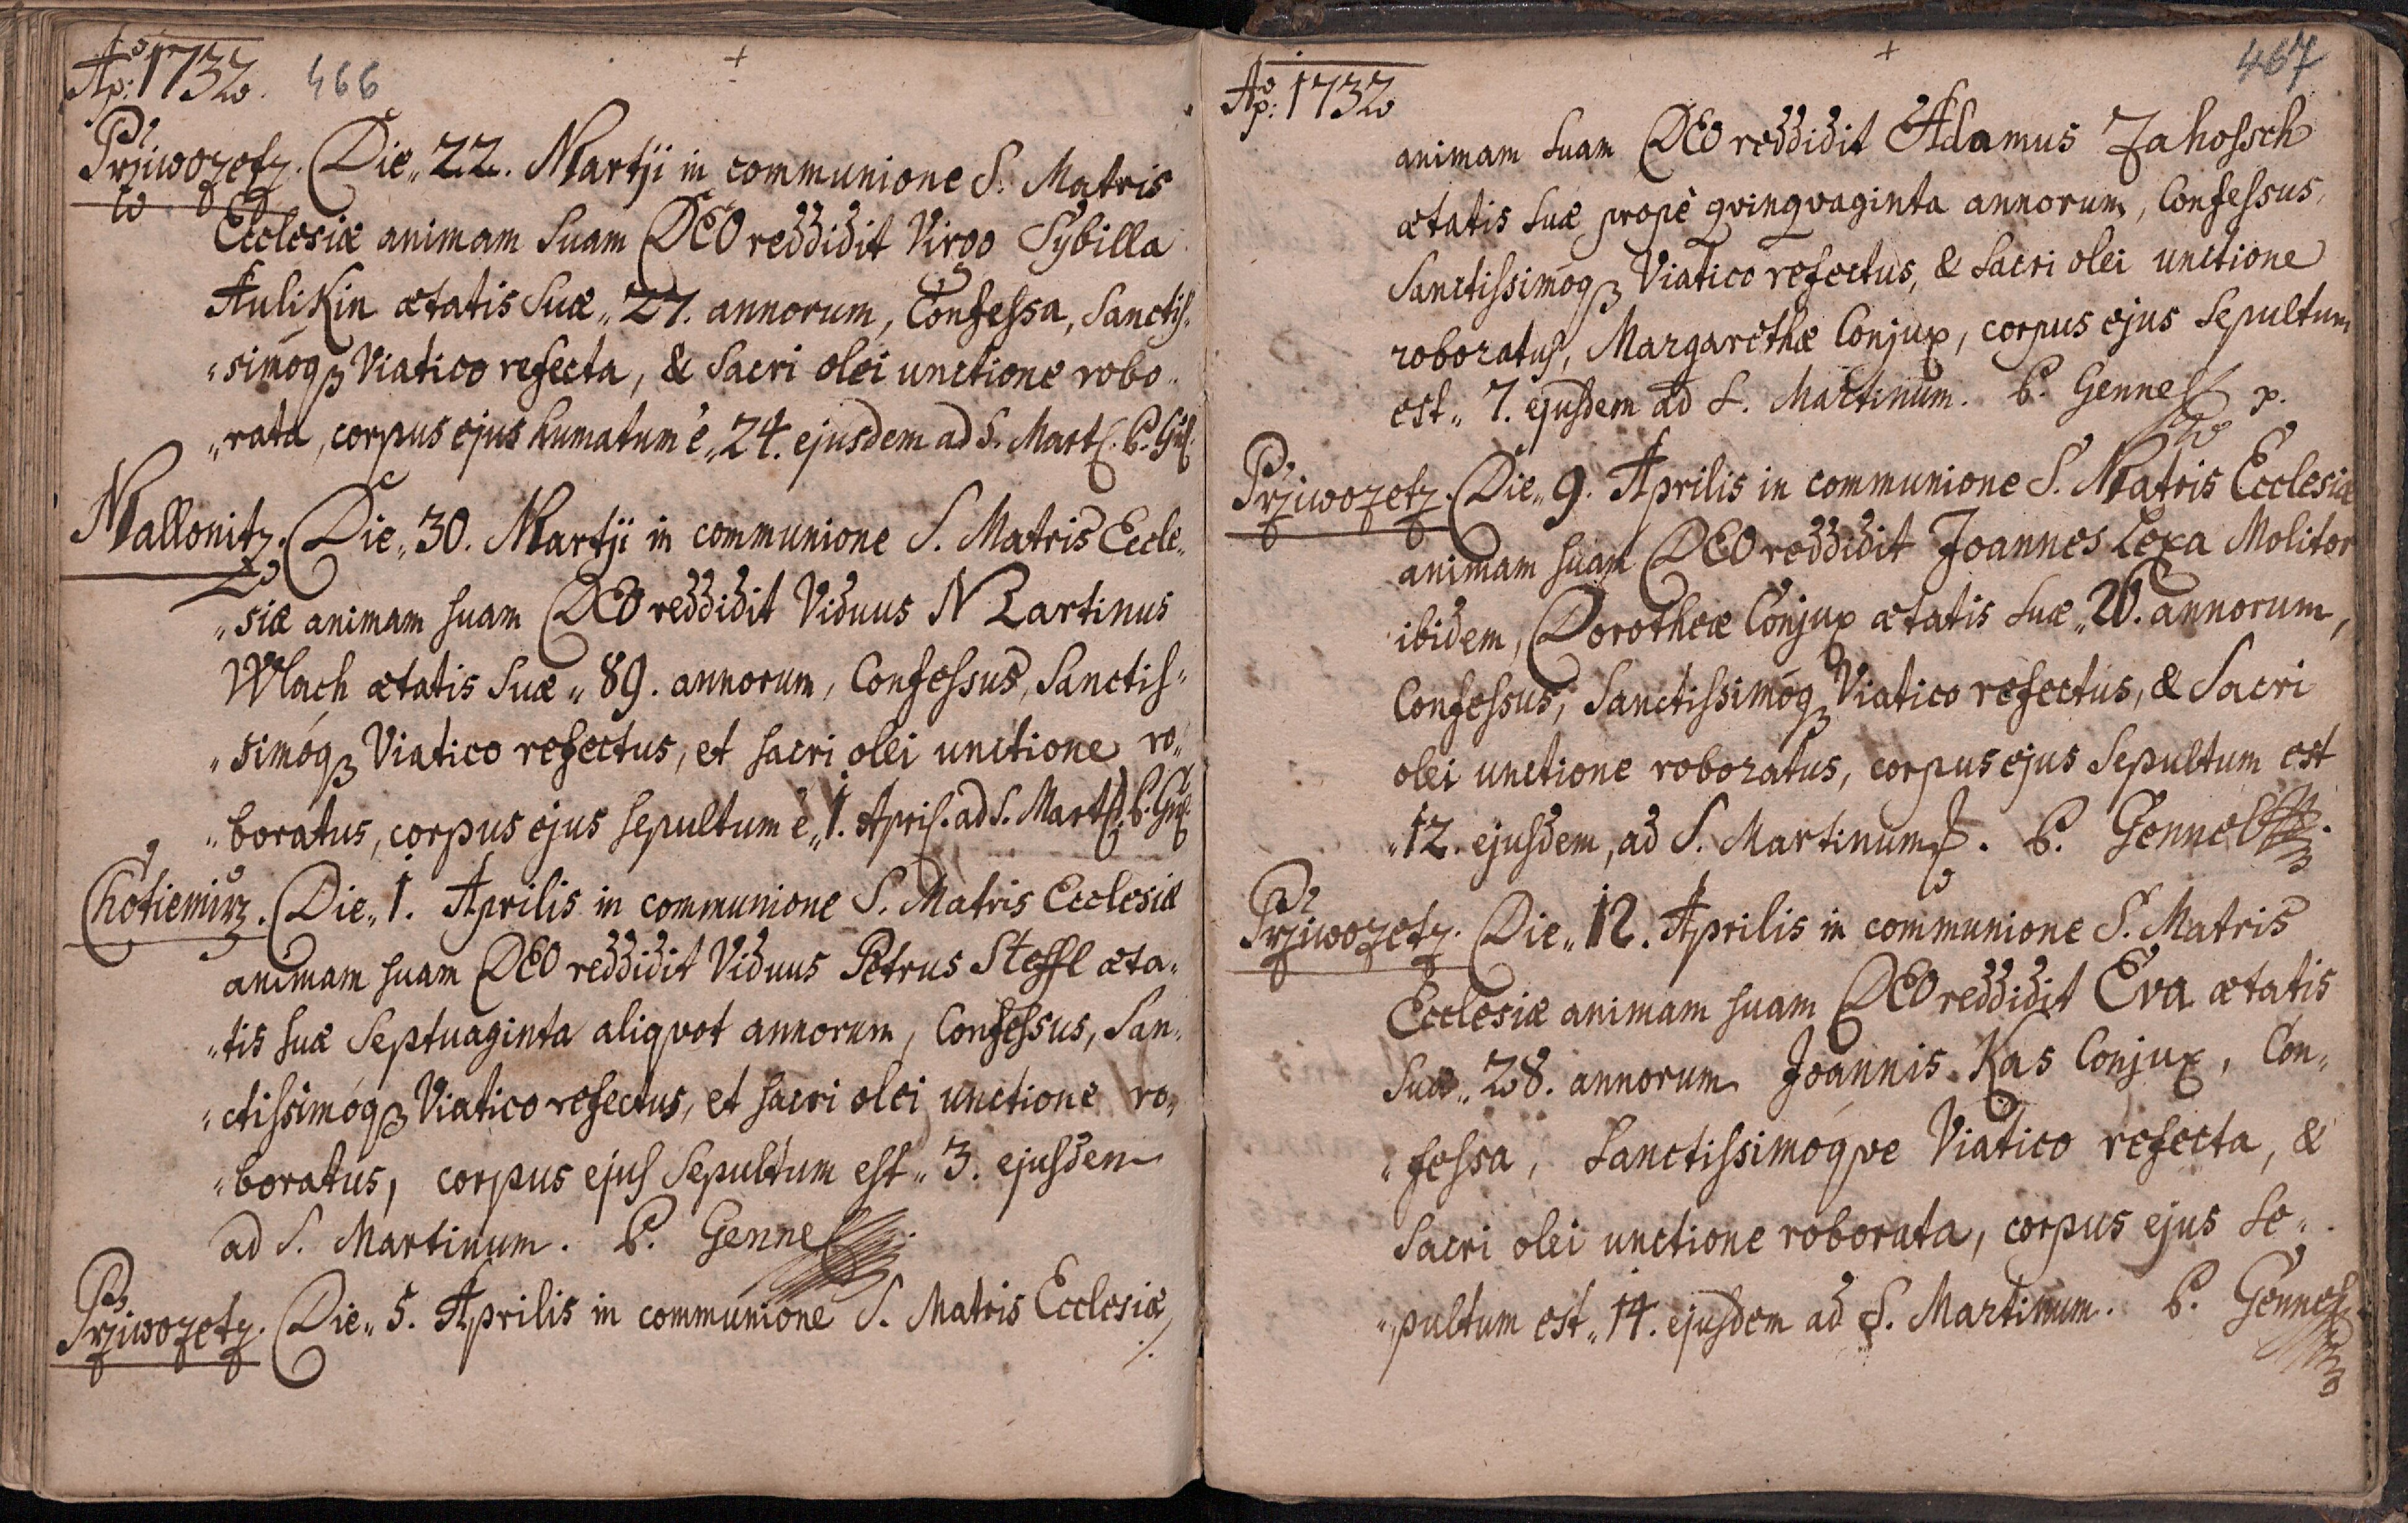 Aō: 1732. 466
Prziwozetz. Die „ 22. Martji in communione S. Matris
Ecclesiæ animam Suam DEO reddidit Virgo Sybilla
Aulikin ætatis Suæ „ 27. annorum, Confessa, Sanctis„
„simoqꝫ Viatico refecta, & Sacri olei unctione robo„
„rata, corpus ejus humatum ē „ 24. ejusdem ad S. Mart. P. Gñl.
Mallonitz. Die „ 30. Martji in communione S. Matris Eccle„
„siæ animam suam DEO reddidit Viduus Martinus
Wlach ætatis Suæ „ 89. annorum, Confessus, Sanctis„
„simoqꝫ Viatico refectus, et sacri olei unctione ro„
„boratus, corpus ejus sepultum ē „ 1. April. ad S. Mart. P. Gñl.
Chotiemirz. Die „ 1. Aprilis in communione S. Matris Ecclesiæ
animam suam DEO reddidit Viduus Petrus Steffl æta„
„tis suæ Septuaginta aliqvot annorum, Confessus, San„
„ctissimoqꝫ Viatico refectus, et sacri olei unctione ro„
„boratus, corpus ejus Sepultum est „ 3. ejusdem
ad S. Martinum. P. Gennel
Prziwozetz. Die „ 5. Aprilis in communione S. Matris Ecclesiæ
./.
Aō: 1732 467
animam suam DEO reddidit Adamus Zahossch
ætatis suæ propè qvinqvaginta annorum, Confessus,
Sanctissimoqꝫ Viatico refectus, & Sacri olei unctione
roboratus, Margarethæ Conjux, corpus ejus Sepultum
est „ 7. ejusdem ad S. Martinum. P. Gennel
Prziwozetz. Die „ 9. Aprilis in communione S. Matris Ecclesiæ
animam suam DEO reddidit Joannes Lexa Molitor
ibidem, Dorotheæ Conjux ætatis suæ „ 26. annorum,
Confessus, Sanctissimoqꝫ Viatico refectus, & Sacri
olei unctione roboratus, corpus ejus Sepultum est
„12. ejusdem, ad S. Martinum. P. Gennel
Prziwozetz. Die „ 12. Aprilis in communione S. Matris
Ecclesiæ animam suam DEO reddidit Eva ætatis
suæ „ 28. annorum Joannis Kas Conjux, Con„
„fessa, Sanctissimoqve Viatico refecta, &
Sacri olei unctione roborata, corpus ejus se„
„pultum est „ 14. ejusdem ad S. Martinum. P. Gennel